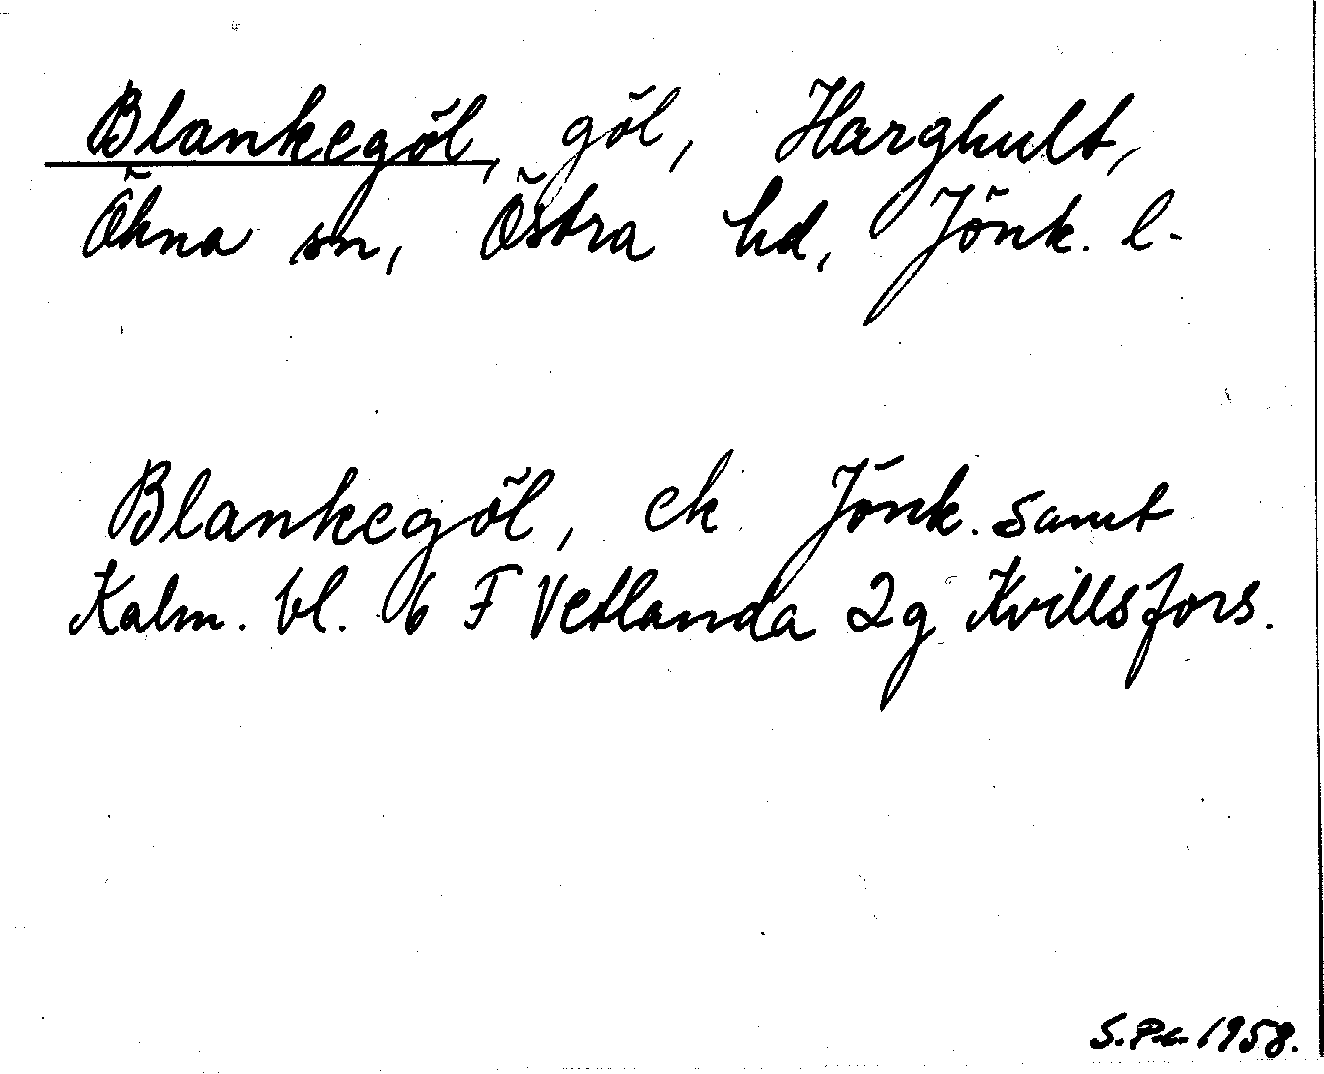 Blankegöl, göl, Harghult,
Ökna sn, Östra hd, Jönk. l.
Blankegöl, ek Jönk. samt
Kalm. bl. 6 F Vetlanda 2g Kvillsfors.
1958.